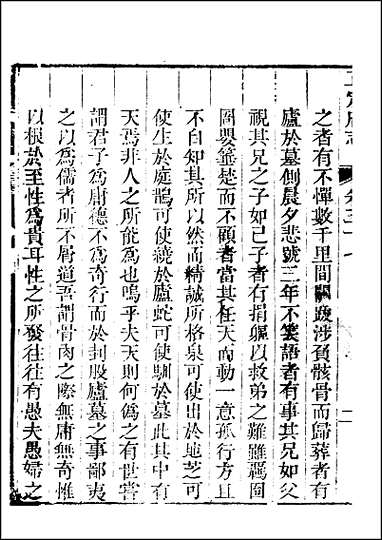 之者有不憚數千里間關跋涉負骸骨而歸葬者有
廬於墓側晨夕悲號三年不笑語者有事其兄如父
視其兄之子如己子者有捐軀以救弟之難雖羈囹
圄嬰箠楚而不顧者當其任天而動一意孤行方且
不自知其所以然而精誠所格泉可使出於地芝可
使生於庭鵲可使繞於廬蛇可使馴於墓此其中有
天焉非人之所能為也嗚乎夫天則何偽之有世嘗
謂君子為庸德不為奇行而於刲股廬墓之事鄙夷
之以為儒者所不屑道吾謂骨肉之際無庸無奇惟
以根於至性為貴耳性之所發往往有愚夫愚婦之